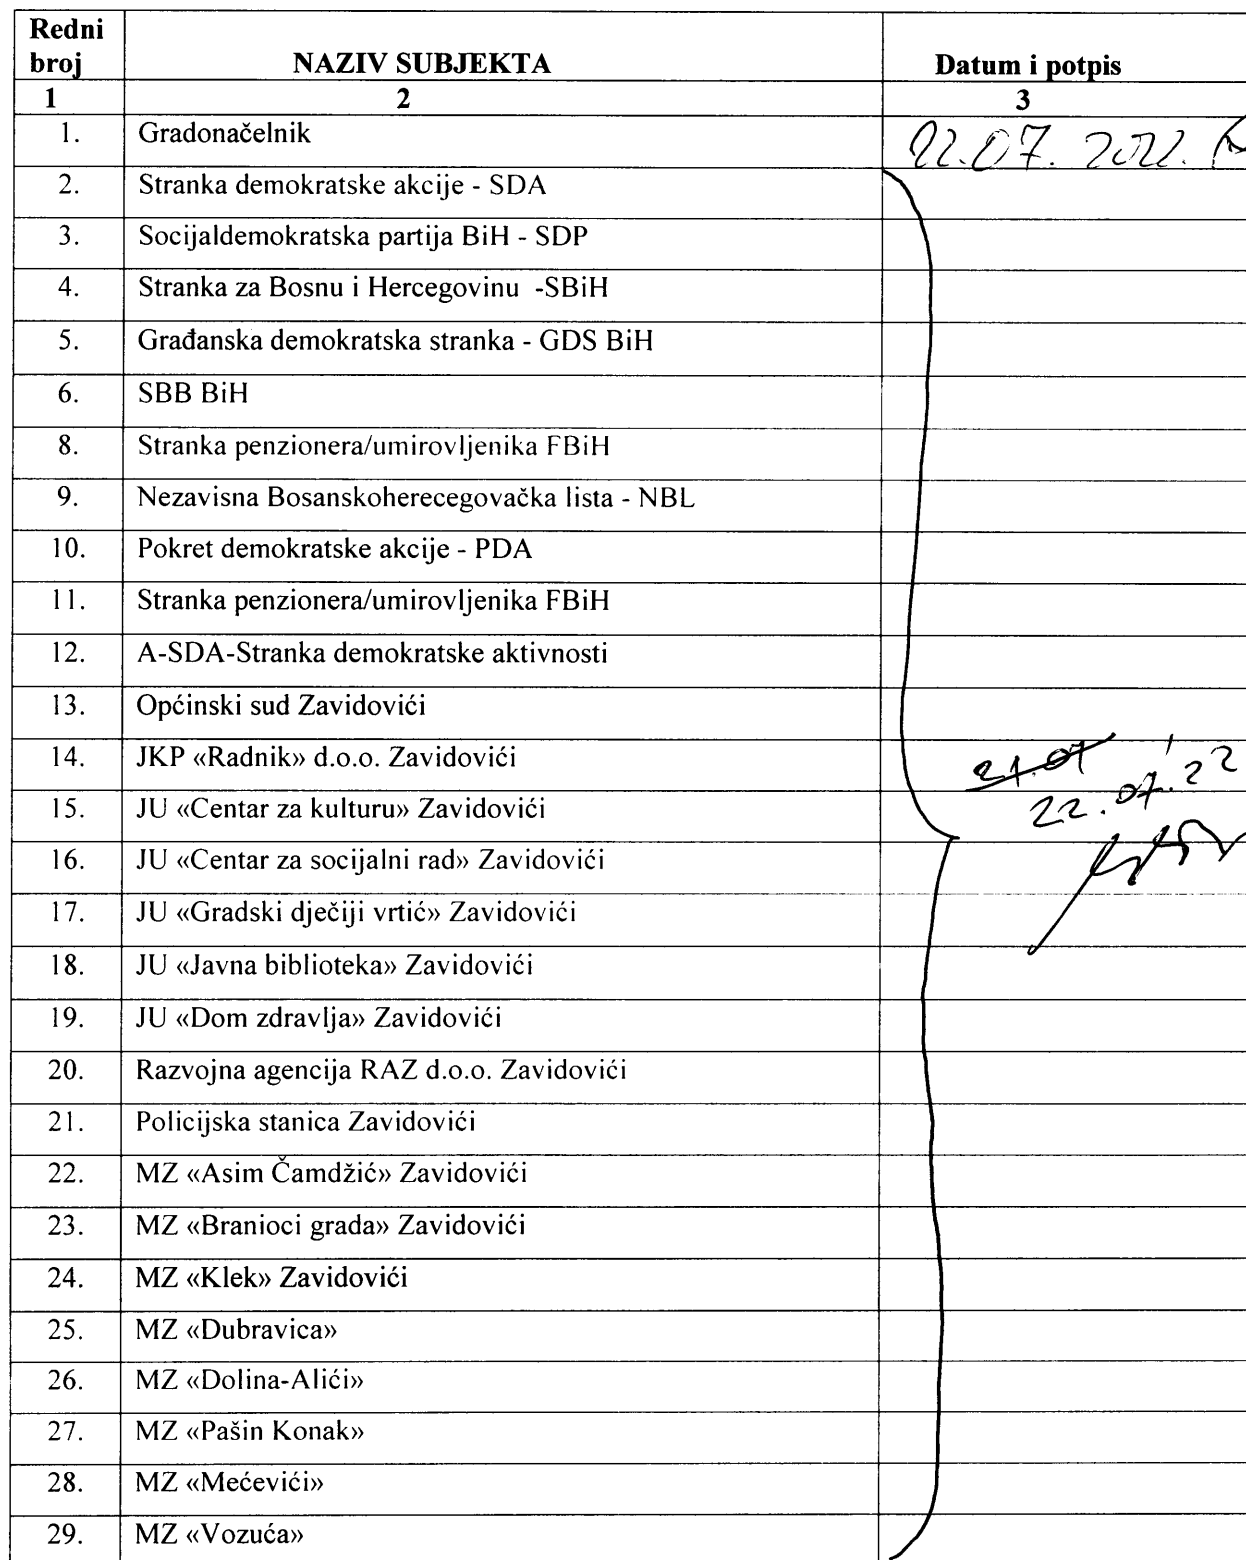 Redni broj NAZIV SUBJEKTA Datum i potpis
1 2 3
1. Gradonačelnik 22.07.2022.
2. Stranka demokratske akcije - SDA
3. Socijaldemokratska partija BiH - SDP
4. Stranka za Bosnu i Hercegovinu -SBiH
5. Građanska demokratska stranka - GDS BiH
6. SBB BiH
8. Stranka penzionera/umirovljenika FBiH
9. Nezavisna Bosanskoherecegovačka lista - NBL
10. Pokret demokratske akcije - PDA
11. Stranka penzionera/umirovljenika FBiH
12. A-SDA-Stranka demokratske aktivnosti
13. Općinski sud Zavidovići
14. JKP «Radnik» d.o.o. Zavidovići 21.07
15. JU «Centar za kulturu» Zavidovići 22.07.'22
16. JU «Centar za socijalni rad» Zavidovići
17. JU «Gradski dječiji vrtić» Zavidovići
18. JU «Javna biblioteka» Zavidovići
19. JU «Dom zdravlja» Zavidovići
20. Razvojna agencija RAZ d.o.o. Zavidovići
21. Policijska stanica Zavidovići
22. MZ «Asim Čamdžić» Zavidovići
23. MZ «Branioci grada» Zavidovići
24. MZ «Klek» Zavidovići
25. MZ «Dubravica»
26. MZ «Dolina-Alići»
27. MZ «Pašin Konak»
28. MZ «Mećevići»
29. MZ «Vozuća»